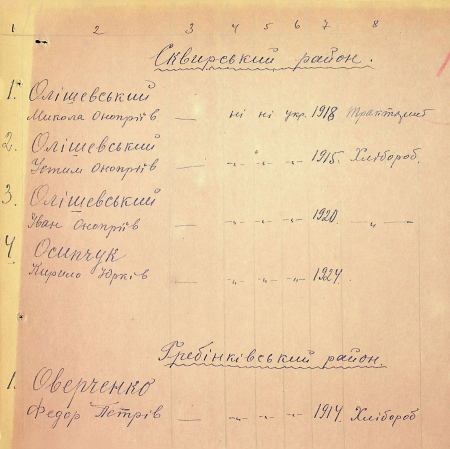 1 2 3 4 5 6 7 8
Сквирський район.
1. Олішевський
Микола Онопріїв — ні ні укр. 1918 Тракторист
2. Олішевський
Устим Онопріїв — -„- -„- -„- 1915. Хлібороб.
3. Олішевський
Іван Онопріїв — -„- -„- -„- 1920. — „ —
4. Осипчук
Кирило Юрків — -„- -„- -„- 1924.
Гребінківський район.
1. Оверченко
Федор Петрів — -„- -„- -„- 1914. Хлібороб